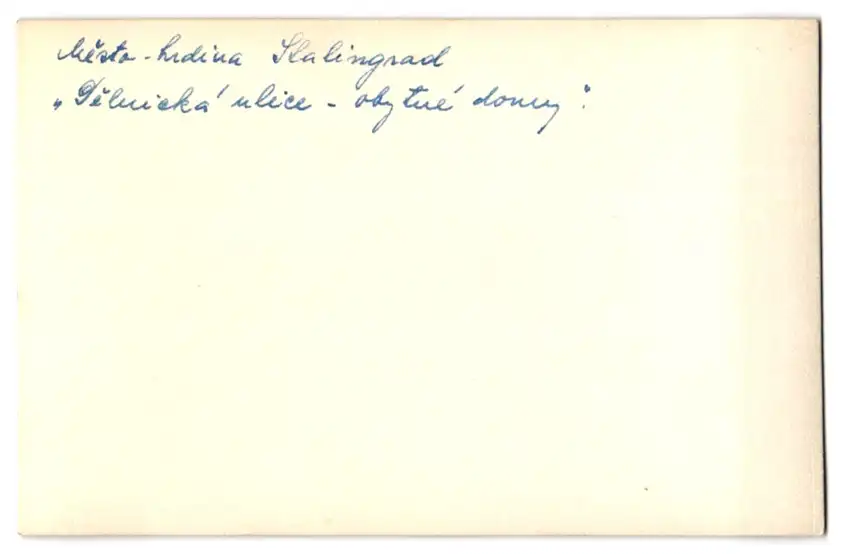 Město-hrdina Stalingrad
„Dělnická ulice - obytné domy".